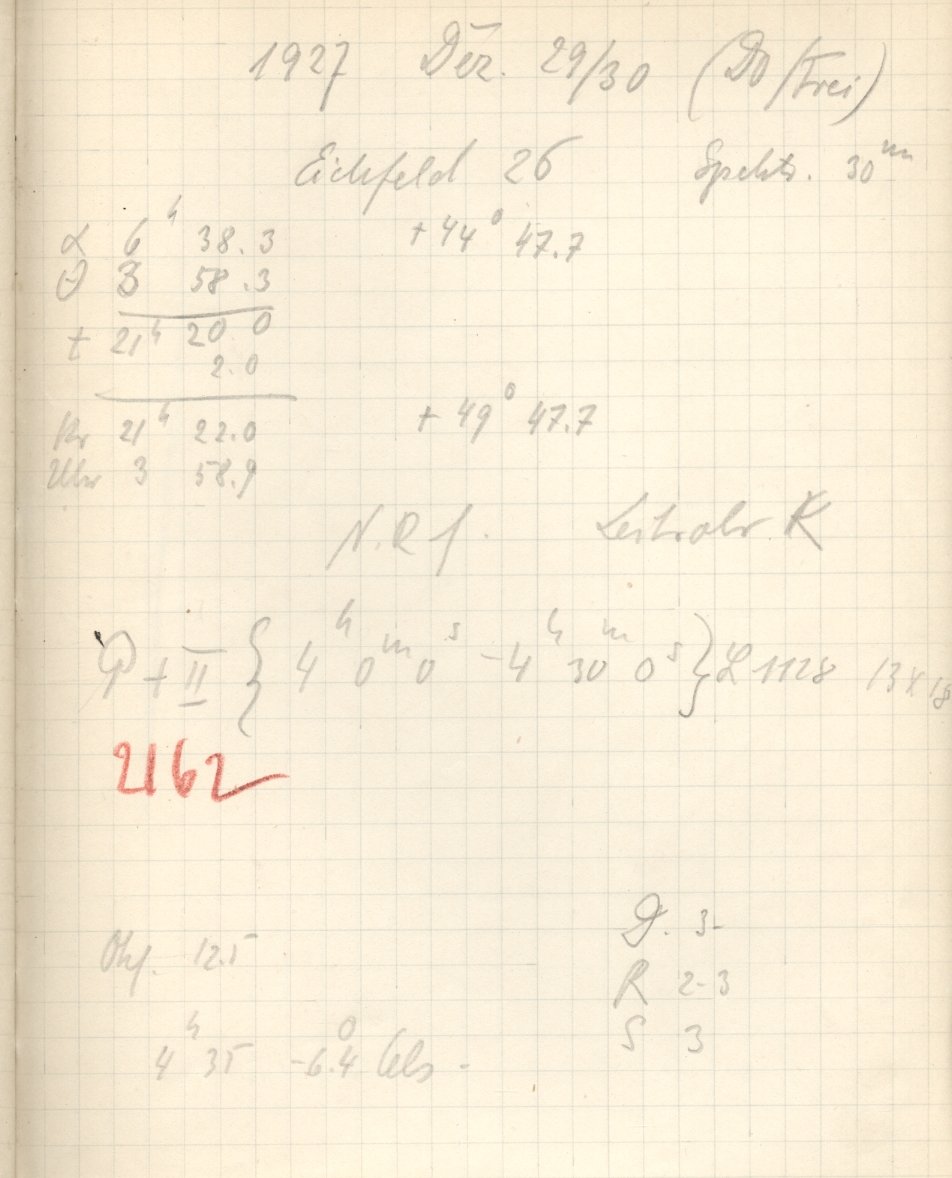 1927 Dez. 29/30 (Do/Frei)
Eichfeld 26 Spektr. 30ᵐ
α 6ʰ 38.3 +44° 47.7
θ 3 58.3
t 21ʰ 20 0
2.0
Kr 21ʰ 22.0 +49° 47.7
Uhr 3 58.9
N.R f. Leitrohr K
P + II { 4ʰ 0ᵐ 0ˢ - 4ʰ 30ᵐ 0ˢ } L 1128 13 x 18
2162
Okf. 12.5
D. 3-
R 2-3
S 3
4ʰ 35 -6.4° Cels.